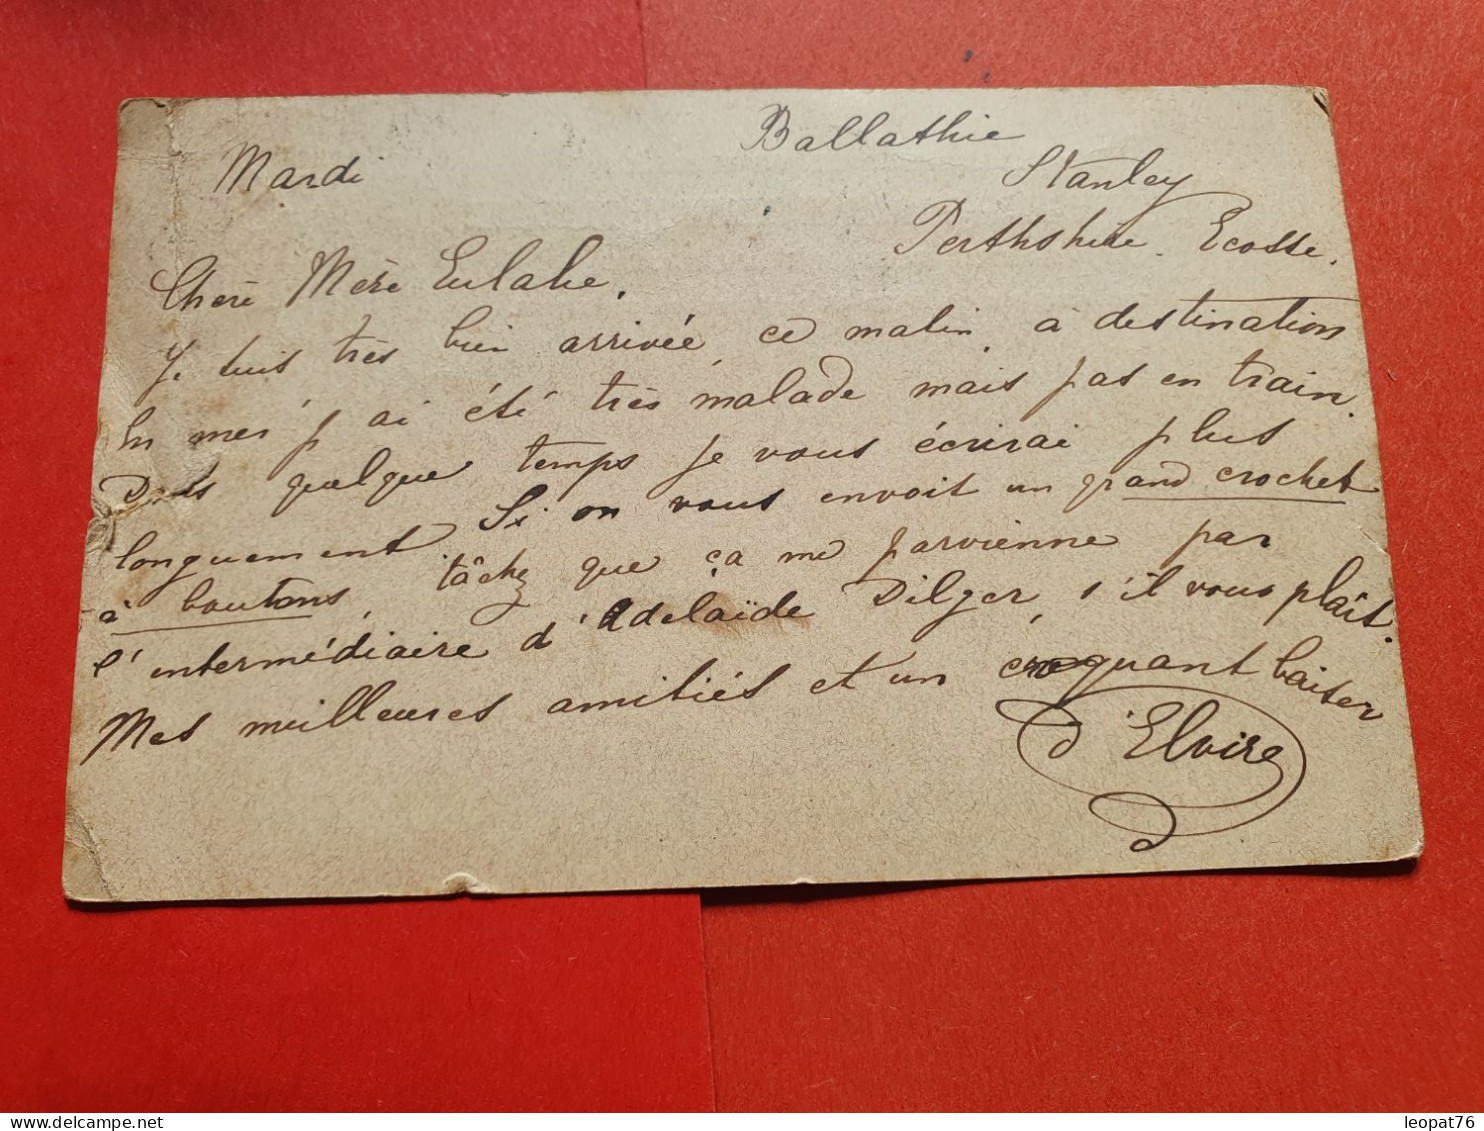 Mardi
Ballathie
Stanley
Perthshire. Ecosse.
Chère Mère Eulalie.
Je suis très bien arrivée ce matin à destination
En mer j'ai été très malade mais pas en train.
Dans quelque temps je vous écrirai plus
longuement Si on vous envoit un grand crochet
à boutons, tâchez que ça me parvienne par
l'intermédiaire d'Adelaïde Dilger, s'il vous plaît.
Mes meilleures amitiés et un croquant baiser
d'Elvire
leopat76